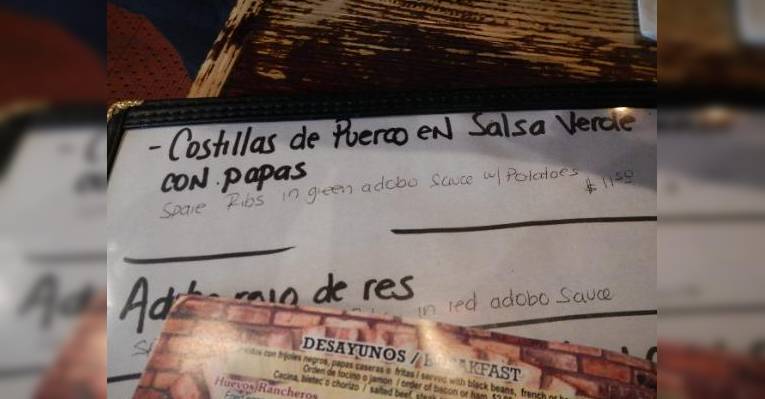 - Costillas de Puerco en Salsa Verde
con papas
Spare Ribs in green adobo sauce w/ Potatoes $11.50
de res
in red adobo sauce
DESAYUNOS / BREAKFAST
con frijoles negros, papas caseras o fritas / served with black beans, french
Orden de tocino o jamon / order of bacon or ham
Cecina, bistec o chorizo / salted beef, steak
Huevos Rancheros